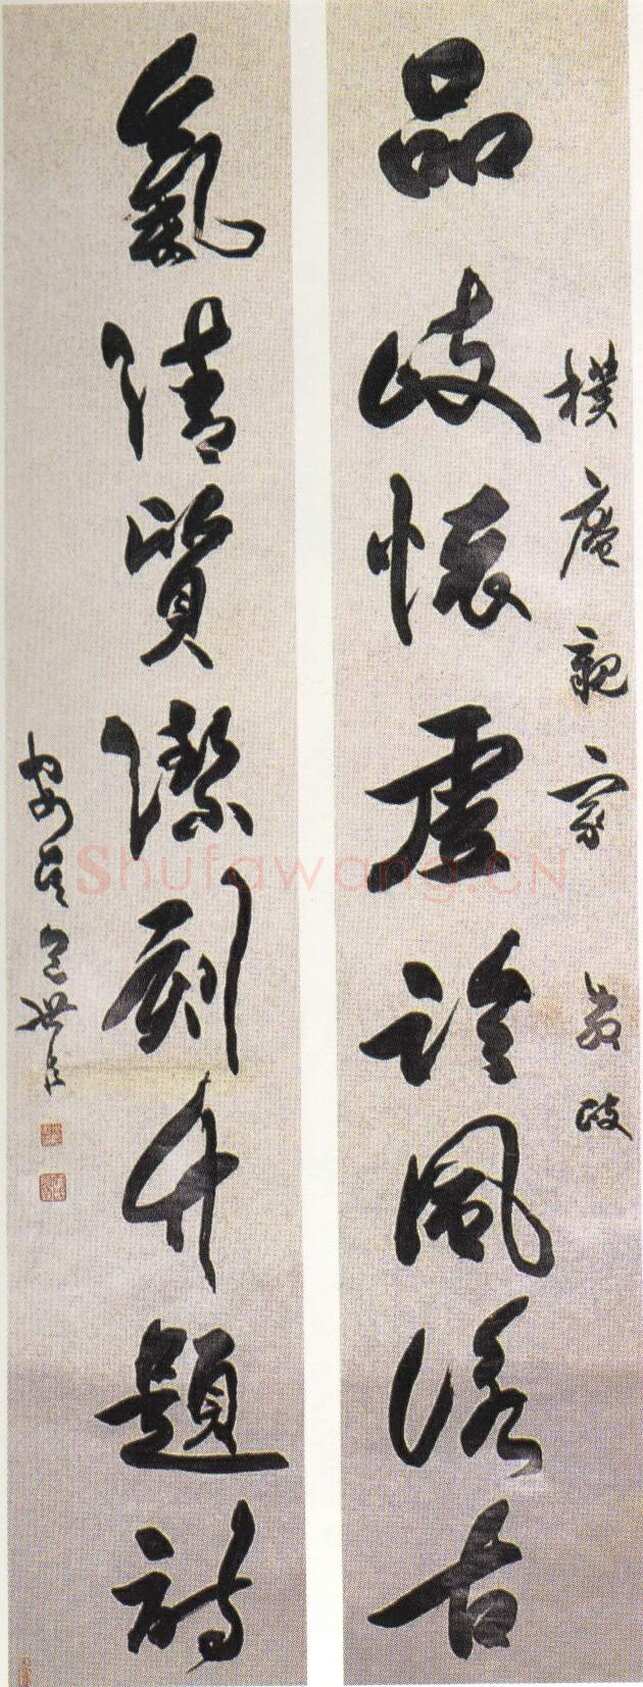 樸庵親家 教政
品峻懷虛訡風詠古
氣清質潔刻竹題詩
安吳包世臣
Shufawang.CN